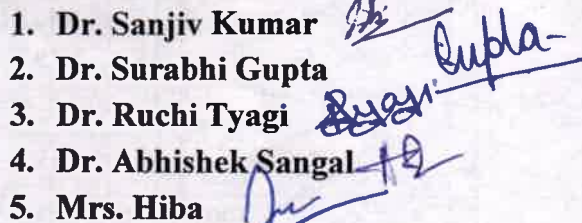 1. Dr. Sanjiv Kumar
2. Dr. Surabhi Gupta Gupta
3. Dr. Ruchi Tyagi Tyagi
4. Dr. Abhishek Sangal
5. Mrs. Hiba